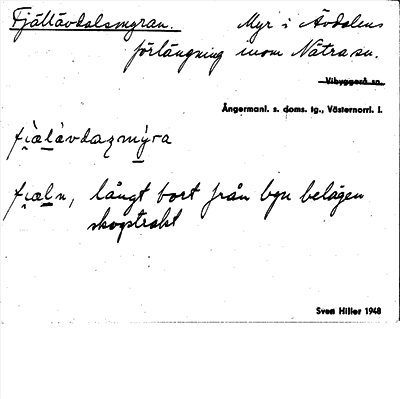 Fjällåvdalsmyran. Myr i Åvdalens
förlängning inom Nätra sn.
Vibyggerå sn.
Ångermanl. s. doms. tg., Västernorrl. l.
fjælåvdaʒmyra
fjæln, långt bort från byn belägen
skogstrakt
Sven Hiller 1948